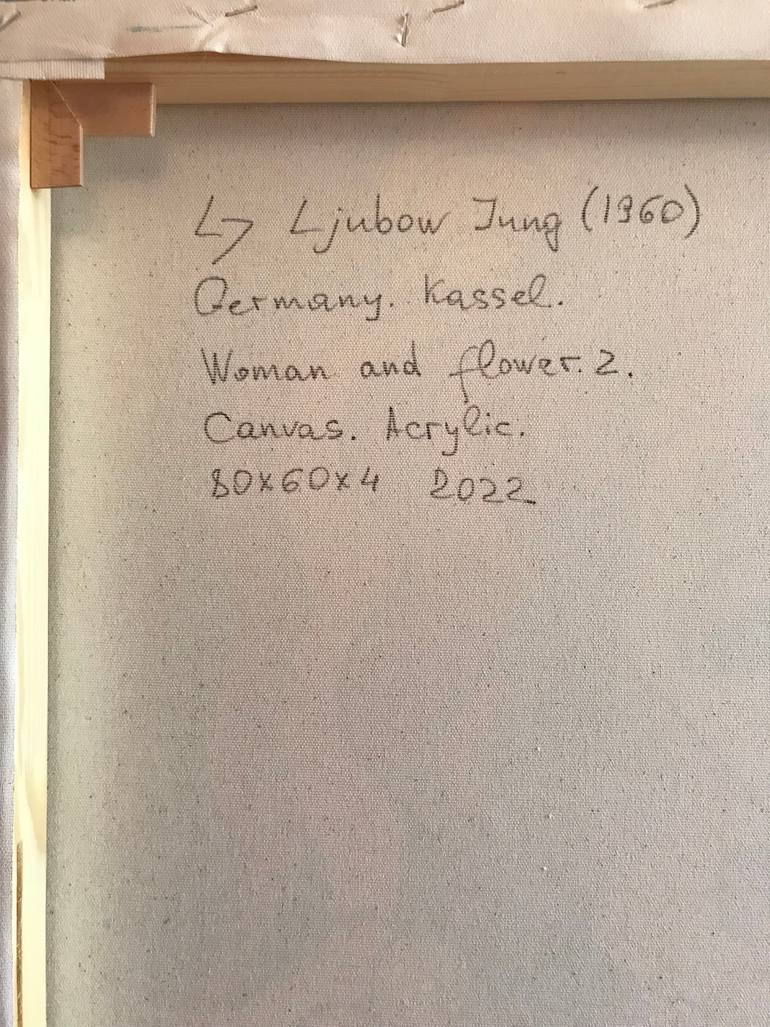 Ljubow Jung (1960)
Germany. Kassel.
Woman and flower. 2.
Canvas. Acrylic.
80x60x4 2022